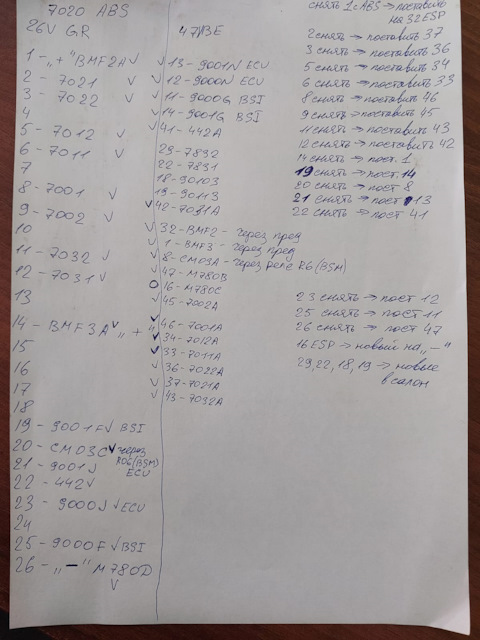 7020 ABS
26V GR
1 - „+" BMF2A √
2 - 7021 √
3 - 7022 √
4
5 - 7012 √
6 - 7011 √
7
8 - 7001 √
9 - 7002 √
10
11 - 7032 √
12 - 7031 √
13
14 - BMF3A √ „+"
15
16
17
18
19 - 9001F √ BSI
20 - CM03C √ через R06 (BSM)
21 - 9001J √ ECU
22 - 442 √
23 - 9000J √ ECU
24
25 - 9000F √ BSI
26 - „—" M780D √
47VBE
√ 13 - 9001N ECU
√ 12 - 9000N ECU
√ 11 - 9000G BSI
√ 14 - 9001G BSI
√ 41 - 442A
29 - 7832
22 - 7831
18 - 90103
19 - 90113
√ 42 - 7031A
√ 32 - BMF2 - через пред
√ 1 - BMF3 - через пред
√ 8 - CM03A - через реле R6 (BSM)
√ 47 - M780B
О 16 - M780C
√ 45 - 7002A
√ 46 - 7001A
√ 34 - 7012A
√ 33 - 7011A
√ 36 - 7022A
√ 37 - 7021A
√ 43 - 7032A
снять 1 с ABS → поставить
на 32 ESP
2 снять → поставить 37
3 снять → поставить 36
5 снять → поставить 34
6 снять → поставить 33
8 снять → поставить 46
9 снять → поставить 45
11 снять → поставить 43
12 снять → поставить 42
14 снять → пост. 1
19 снять → пост. 14
20 снять → пост 8
21 снять → пост 13
22 снять → пост 41
23 снять → пост 12
25 снять → пост 11
26 снять → пост 47
16 ESP → новый на „—"
29, 22, 18, 19 → новые
в салон